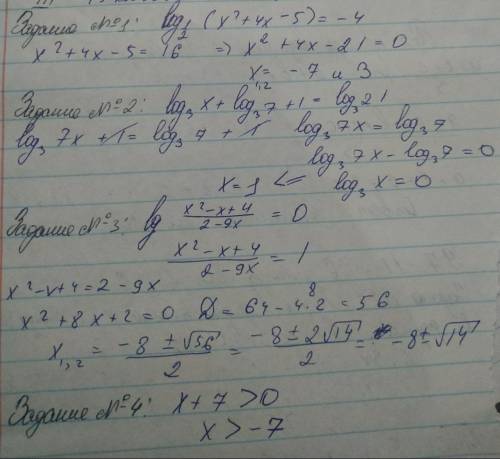 Задание №1: log_{1/2} (x²+4x-5) = -4
x²+4x-5=16 ⇒ x²+4x-21=0
x_{1,2} = -7 и 3
Задание №2: log₃x + log₃7 + 1 = log₃21
log₃7x + 1 = log₃7 + 1 log₃7x = log₃7
log₃7x - log₃7 = 0
x=1 ⇐ log₃x = 0
Задание №3: lg (x²-x+4)/(2-9x) = 0
(x²-x+4)/(2-9x) = 1
x²-x+4=2-9x
x²+8x+2=0 D=64-4·2=56
8
x_{1,2} = (-8±√56)/2 = (-8±2√14)/2 = -8±√14
Задание №4: x+7>0
x>-7